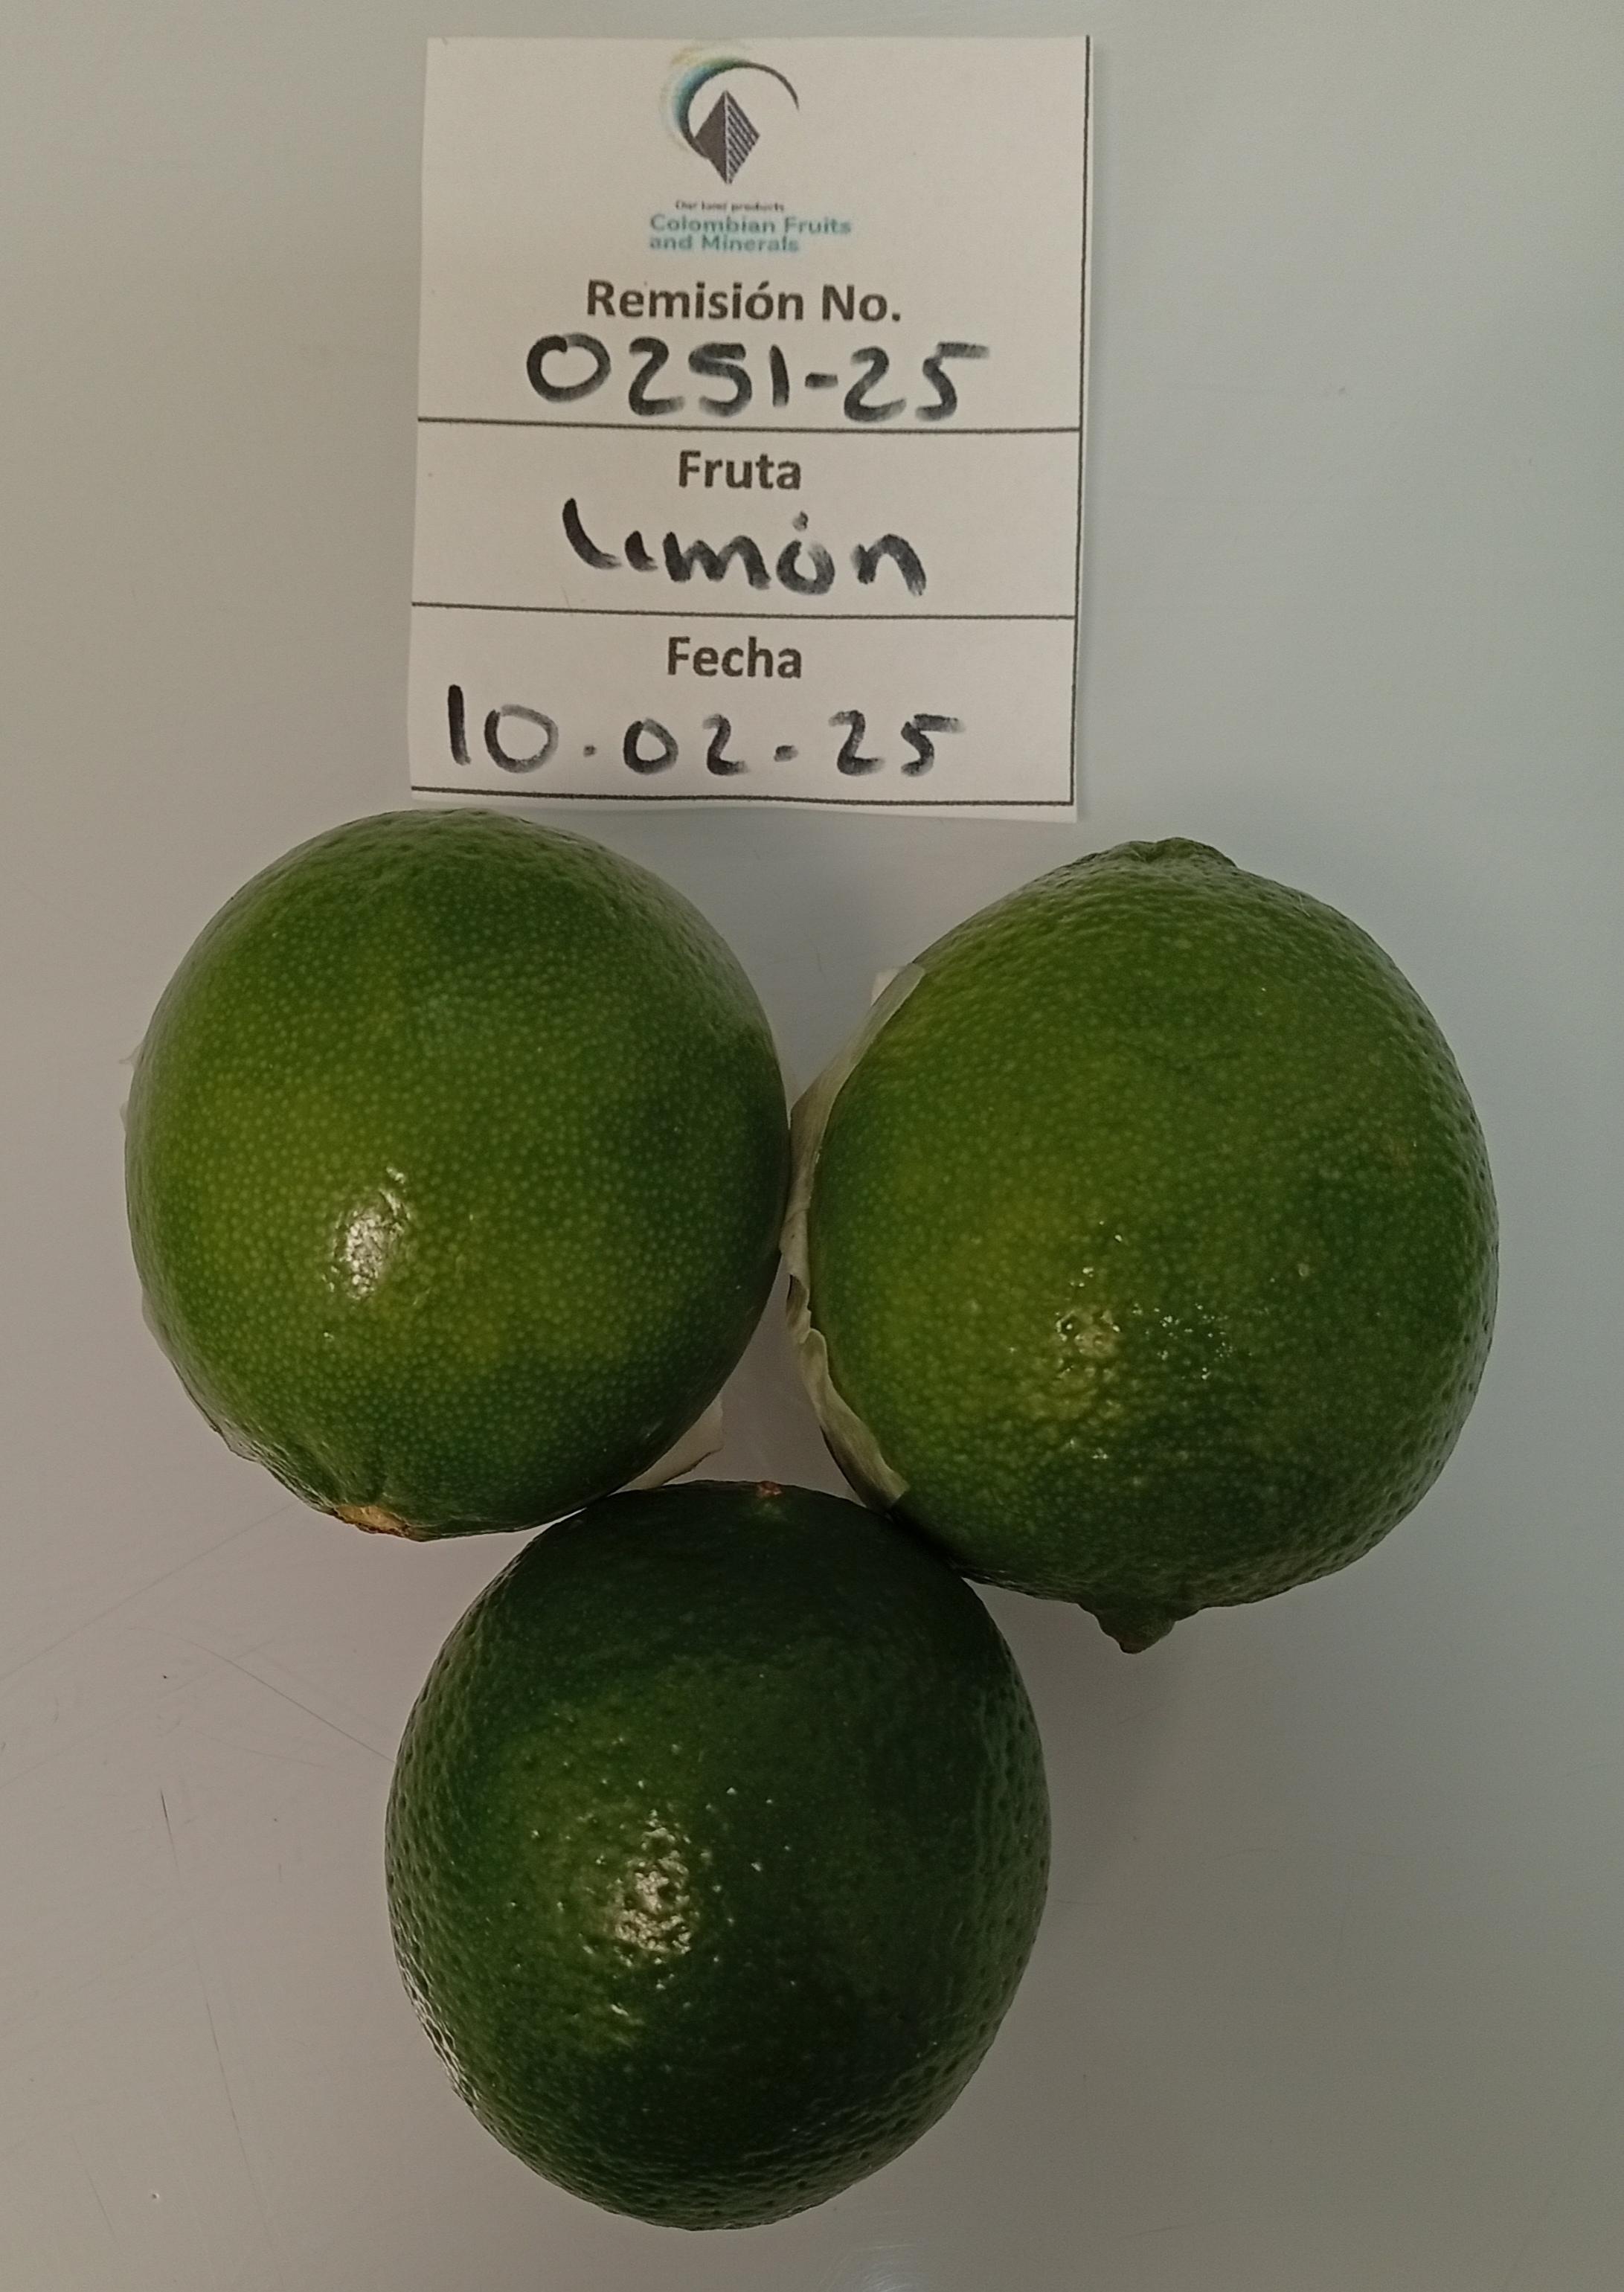 Our land products
Colombian Fruits
and Minerals
Remisión No.
0251-25
Fruta
limón
Fecha
10.02.25